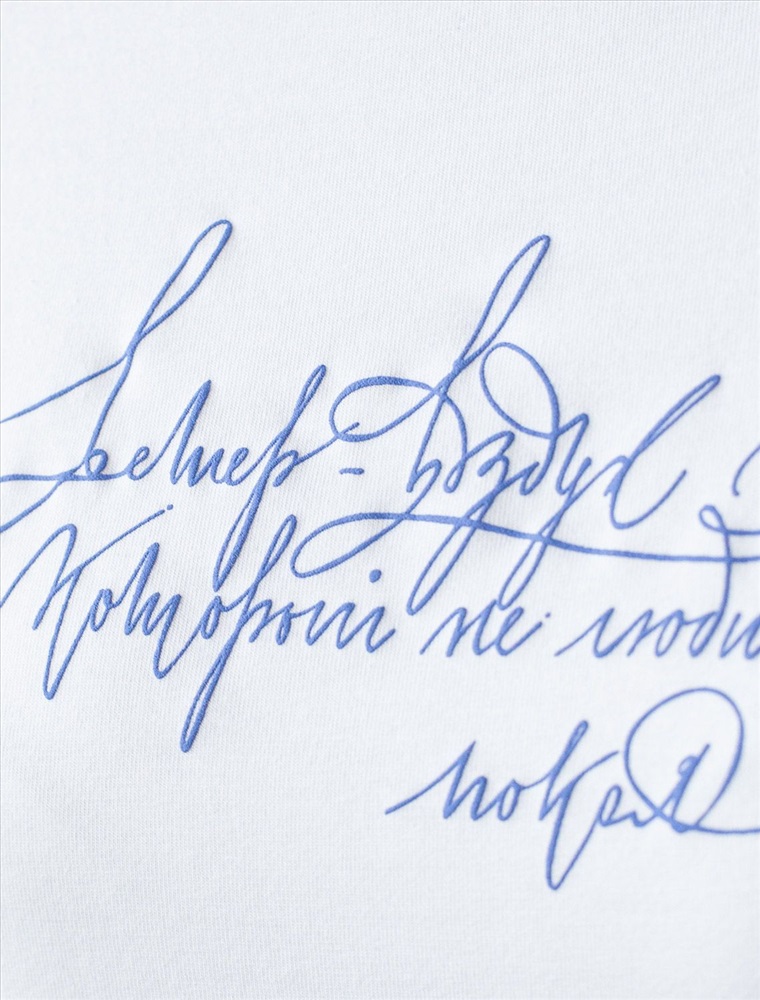 Ветер - воздух
Который не люби
покоя